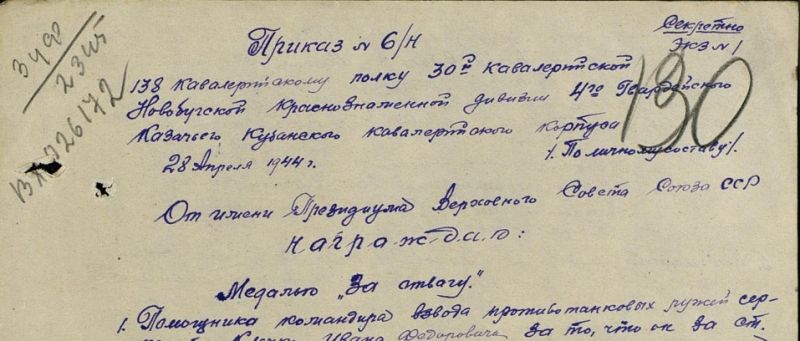 Секретно
Экз N 1
Приказ N 6/н
138 кавалерийскому полку 30й кавалерийской
Новобугской краснознаменной дивизии 4го Гвардейского
Казачьего Кубанского кавалерийского корпуса
28 Апреля 1944 г. /. По личному составу /.
130
От имени Президиума Верховного Совета Союза ССР
награждаю:
Медалью "За отвагу."
1. Помощника командира взвода противотанковых ружей сер-
Ивана Федоровича за то, что он за ст.